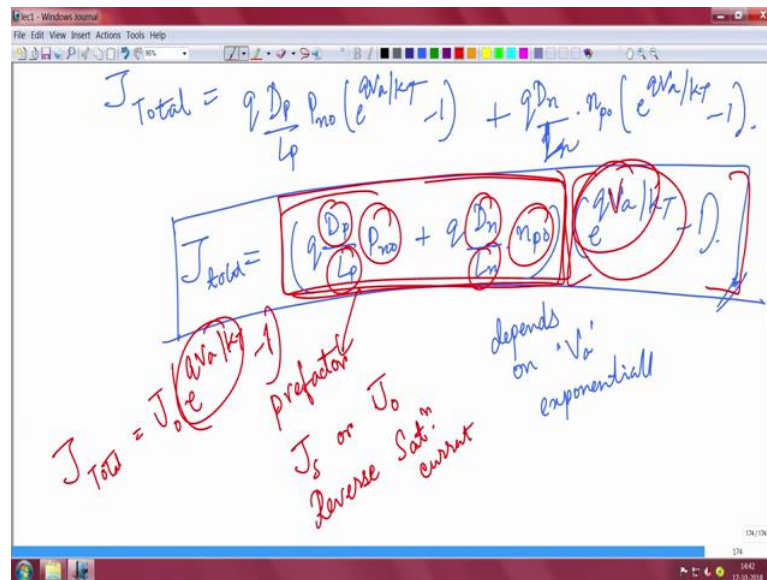 lec1 - Windows Journal
File Edit View Insert Actions Tools Help
J Total = q Dp/Lp Pno (e^qVa/kT -1) + qDn/Ln . npo (e^qVa/kT -1).
J total = (q Dp/Lp Pno + q Dn/Ln . npo) (e^qVa/kT - 1).
J Total = J0 (e^qVa/kT -1)
prefactor
Js or J0
Reverse Satn. current
depends
on 'Va'
exponentiall
174 / 174
174
14:42
17-10-2018